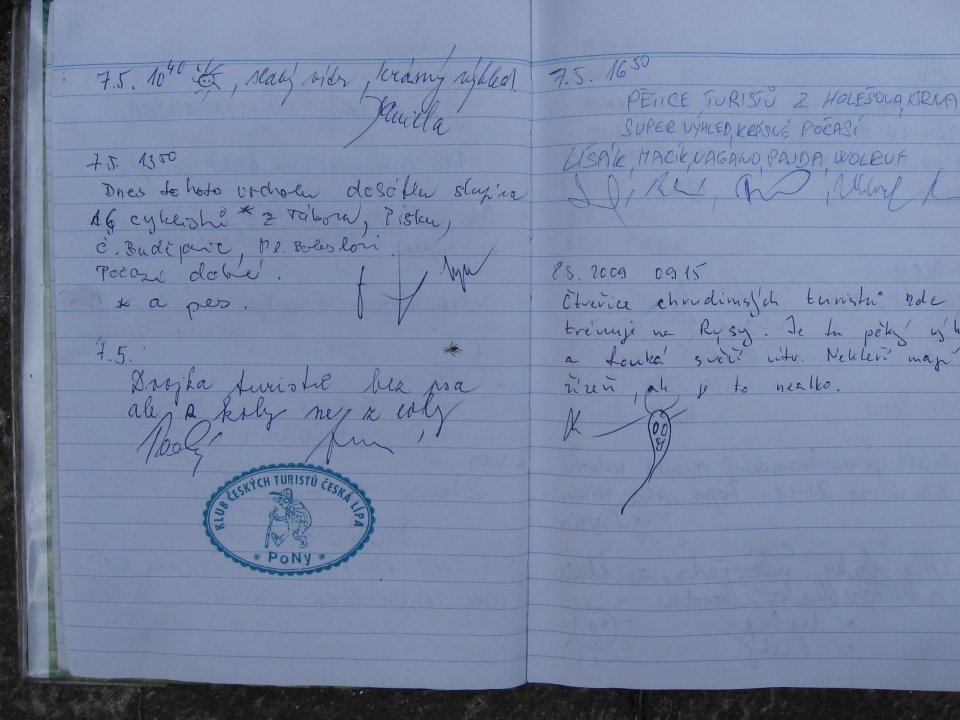 7.5. 10⁴⁰ , slabý vítr, krásný výhled.
Jamilla
7.5. 13⁵⁰
Dnes tohoto vrcholu dosáhla skupina
16 cyklistů * z Tábora, Písku,
Č. Budějovic, Ml. Boleslavi.
Počasí dobré.
* a pes.
7.5.
Dvojka turistů bez psa
ale s koly ne z coly
KLUB ČESKÝCH TURISTŮ ČESKÁ LÍPA
* PoNy *
7.5. 16⁵⁰
PĚTICE TURISTŮ Z HOLEŠOVA, BRNA
SUPER VÝHLED, KRÁSNÉ POČASÍ
LÍSÁK, MACÍK, VAGANO, PAJDA, WOLRUF
8.5. 2009 09.15
Čtveřice chrudimských turistů zde
trénuje na Rysy. Je tu pěkný výh
a fouká svěží vítr. Někteří mají
žízeň, ale je to nealko.